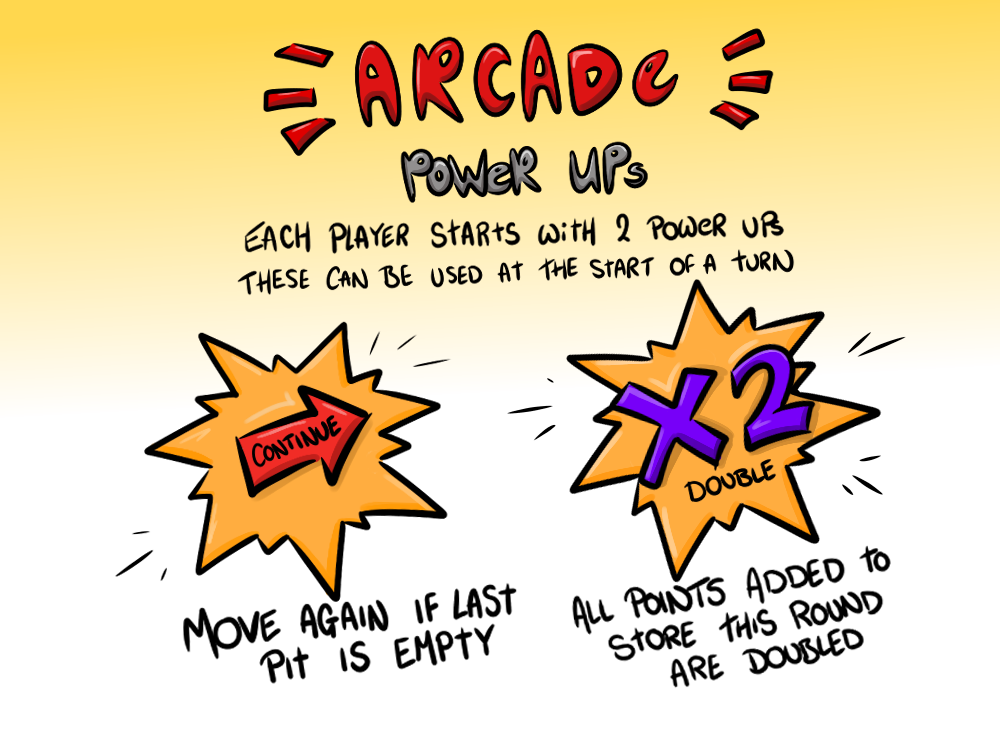 ARCADE
POWER UPS
EACH PLAYER STARTS WITH 2 POWER UPS
THESE CAN BE USED AT THE START OF A TURN
CONTINUE
MOVE AGAIN IF LAST
PIT IS EMPTY
X2
DOUBLE
ALL POINTS ADDED TO
STORE THIS ROUND
ARE DOUBLED